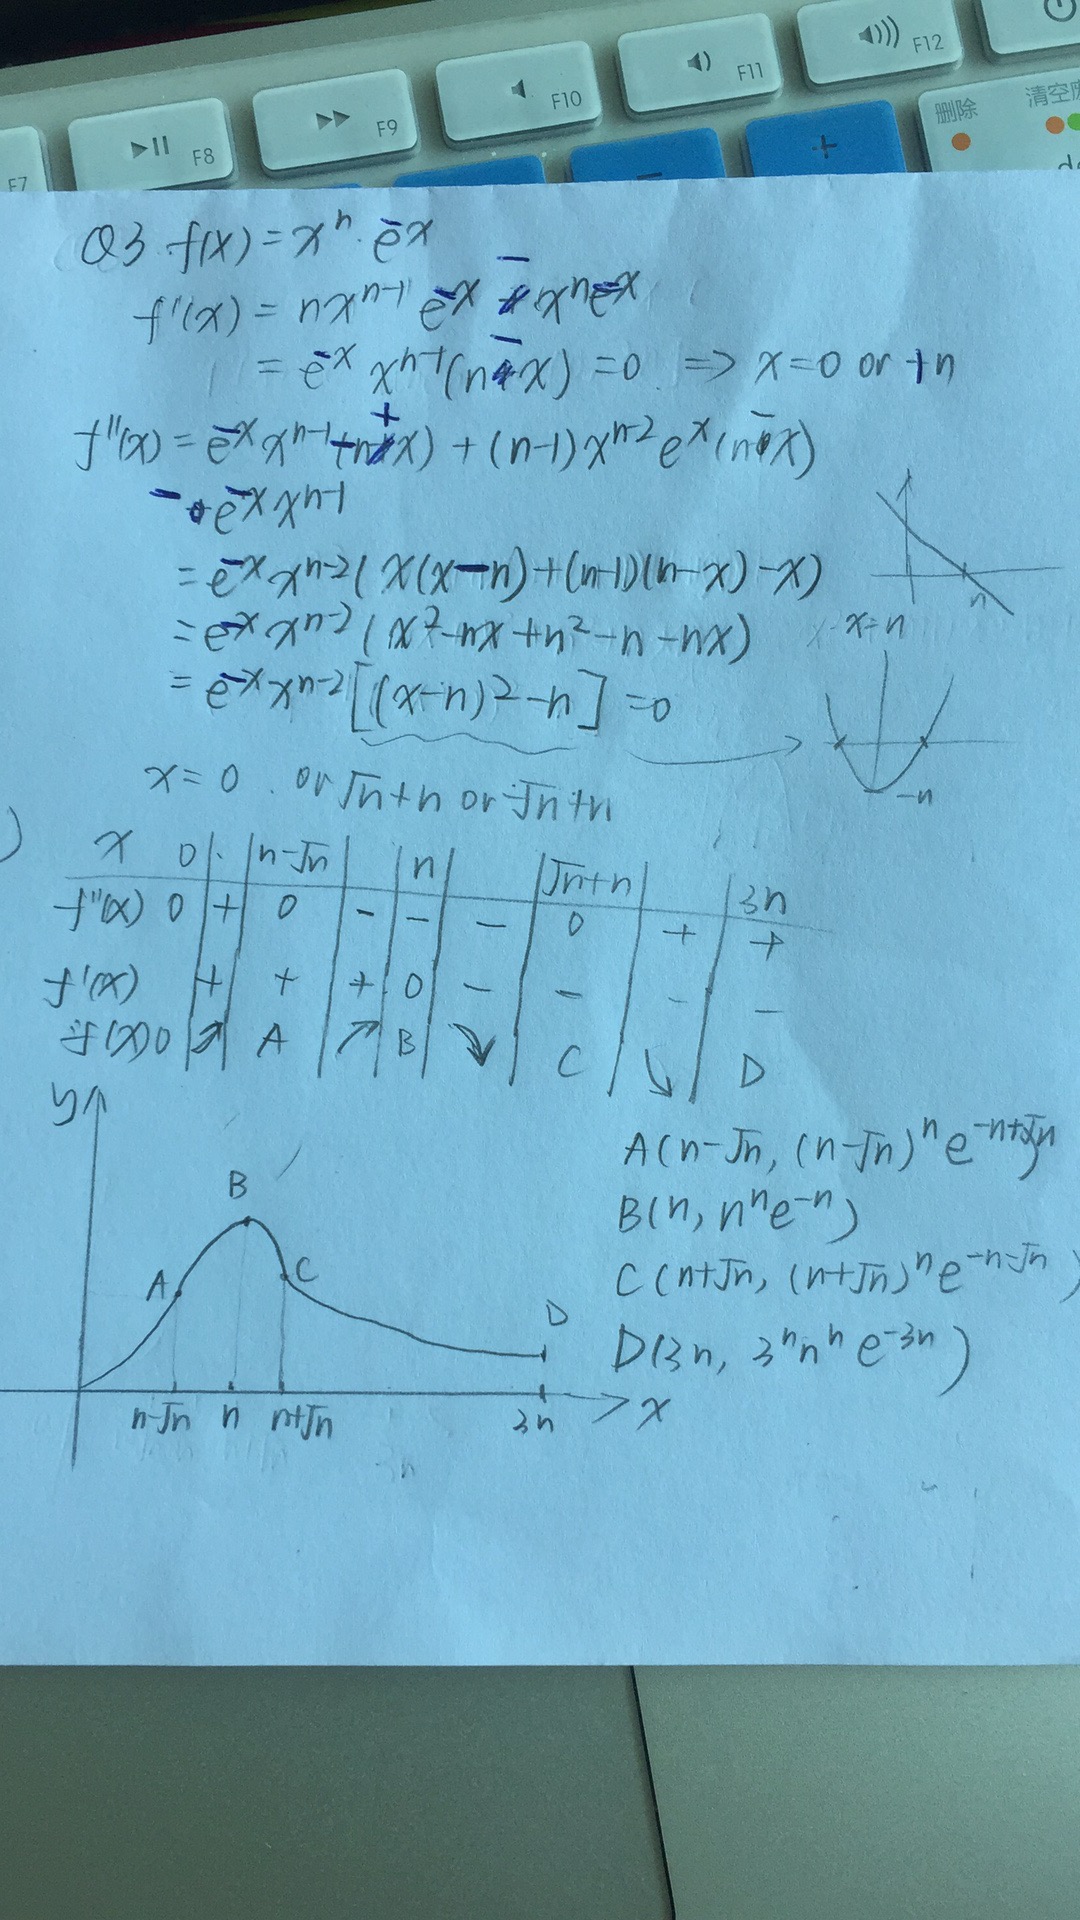 F7 F8 F9 F10 F11 F12 删除 清空
Q3 f(x) = xⁿ · e⁻ˣ
f'(x) = nxⁿ⁻¹ e⁻ˣ - xⁿe⁻ˣ
= e⁻ˣ xⁿ⁻¹(n-x) = 0 ⇒ x=0 or +n
f''(x) = e⁻ˣxⁿ⁻¹(-n+x) + (n-1)xⁿ⁻²eˣ(n-x)
- e⁻ˣxⁿ⁻¹
= e⁻ˣxⁿ⁻²(x(x-n)+(n-1)(n-x)-x)
n
= e⁻ˣxⁿ⁻²(x²-nx+n²-n-nx)
x=n
= e⁻ˣxⁿ⁻²[(x-n)²-n] = 0
-n
x=0 or √n+n or -√n+n
x 0 n-√n n √n+n 3n
f''(x) 0 + 0 - - - 0 + +
f'(x) + + + 0 - - - -
f(x) 0 ↗ A ↗ B ↘ C ↘ D
y
A(n-√n, (n-√n)ⁿe^(-n+√n))
B
B(n, nⁿe⁻ⁿ)
A C
C(n+√n, (n+√n)ⁿe^(-n-√n))
D
D(3n, 3ⁿnⁿe⁻³ⁿ)
n-√n n n+√n 3n x